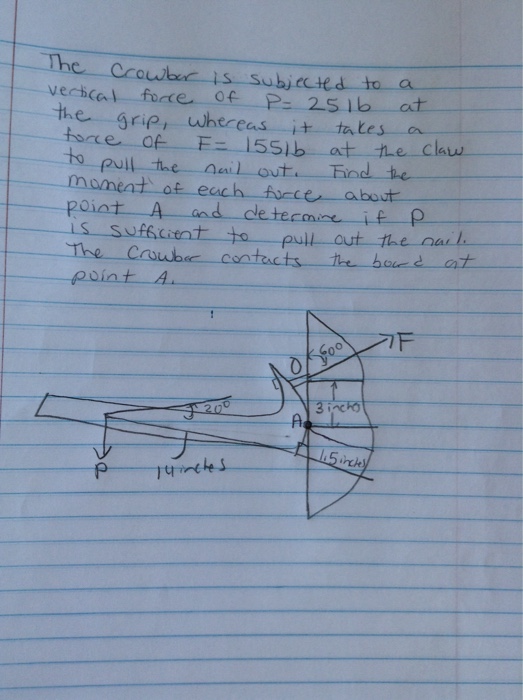 The Crowbar is subjected to a
vertical force of P= 25lb at
the grip, whereas it takes a
force of F= 155lb at the claw
to pull the nail out. Find the
moment of each force about
point A and determine if P
is sufficient to pull out the nail.
The Crowbar contacts the board at
point A.
60°
F
O
20°
3 inches
A
1.5 inches
P
14 inches